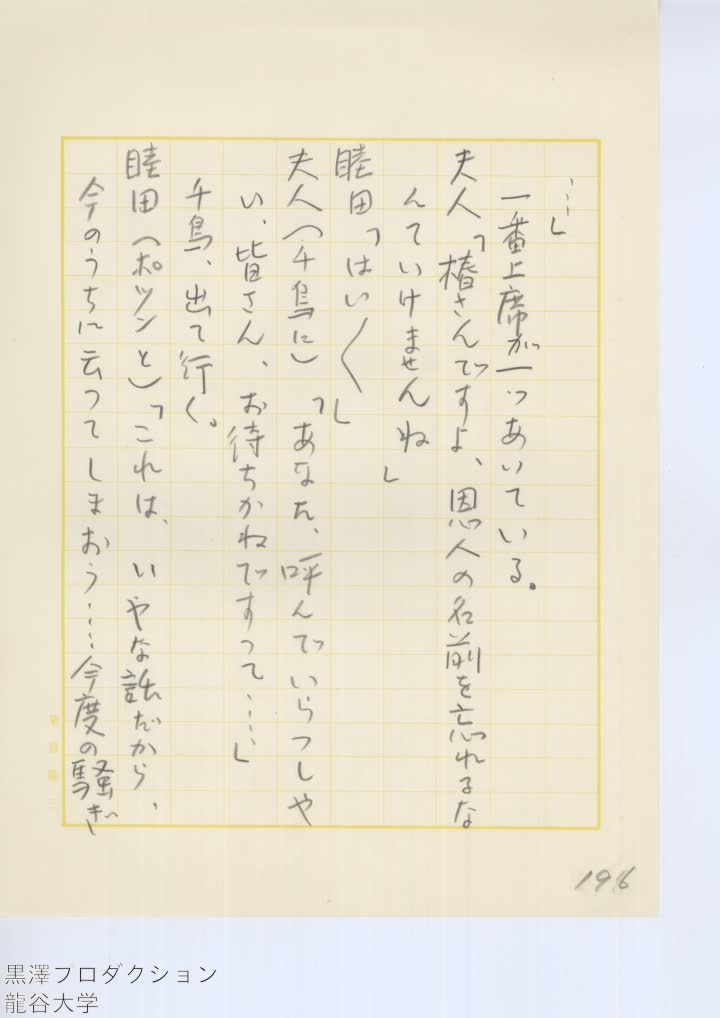 ……」
一番上席が一つあいている。
夫人「椿さんですよ、恩人の名前を忘れるな
んていけませんね」
睦田「はい〱」
夫人（千鳥に）「あなた、呼んでいらつしや
い、皆さん、お待ちかねですつて……」
千鳥、出て行く。
睦田（ポツンと）「これは、いやな話だから、
今のうちに云つてしまおう……今度の騒ぎ
196
黒澤プロダクション
龍谷大学